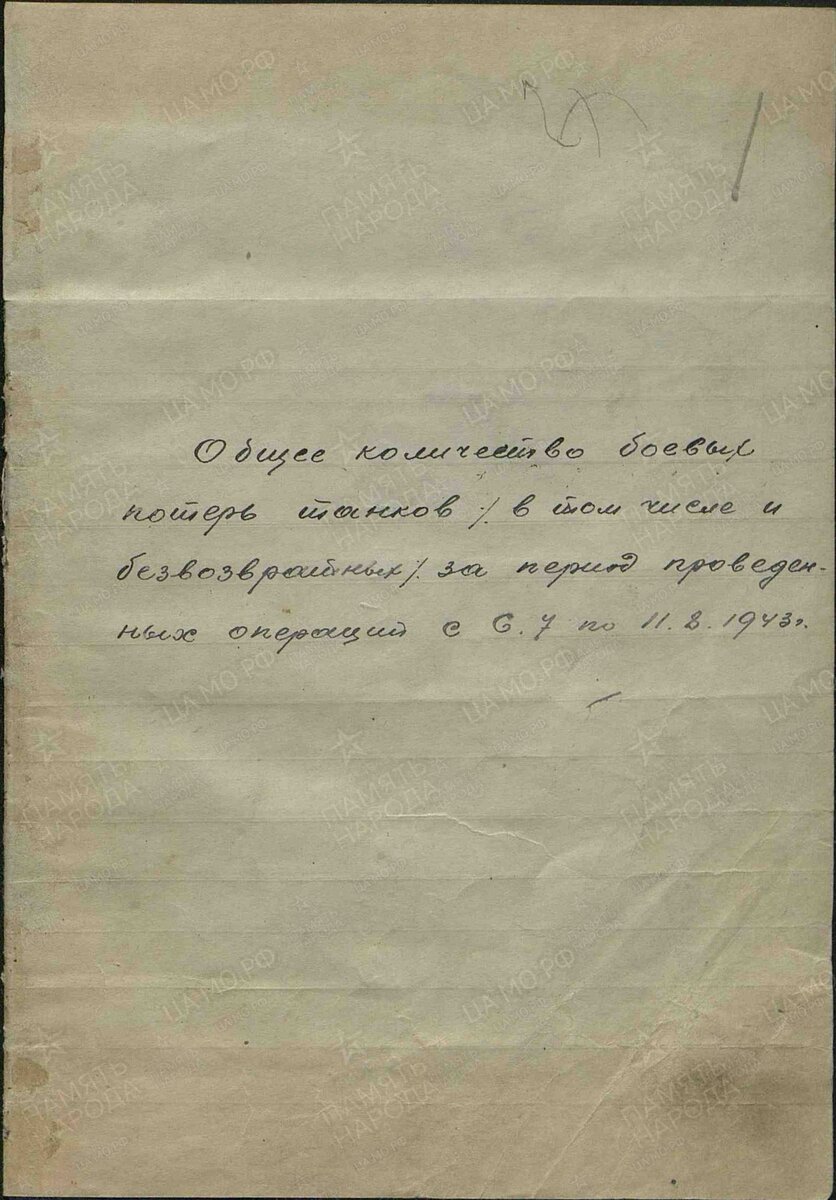 Общее количество боевых
потерь танков /в том числе и
безвозвратных/ за период проведен-
ных операций с 6.7 по 11.8.1943г.